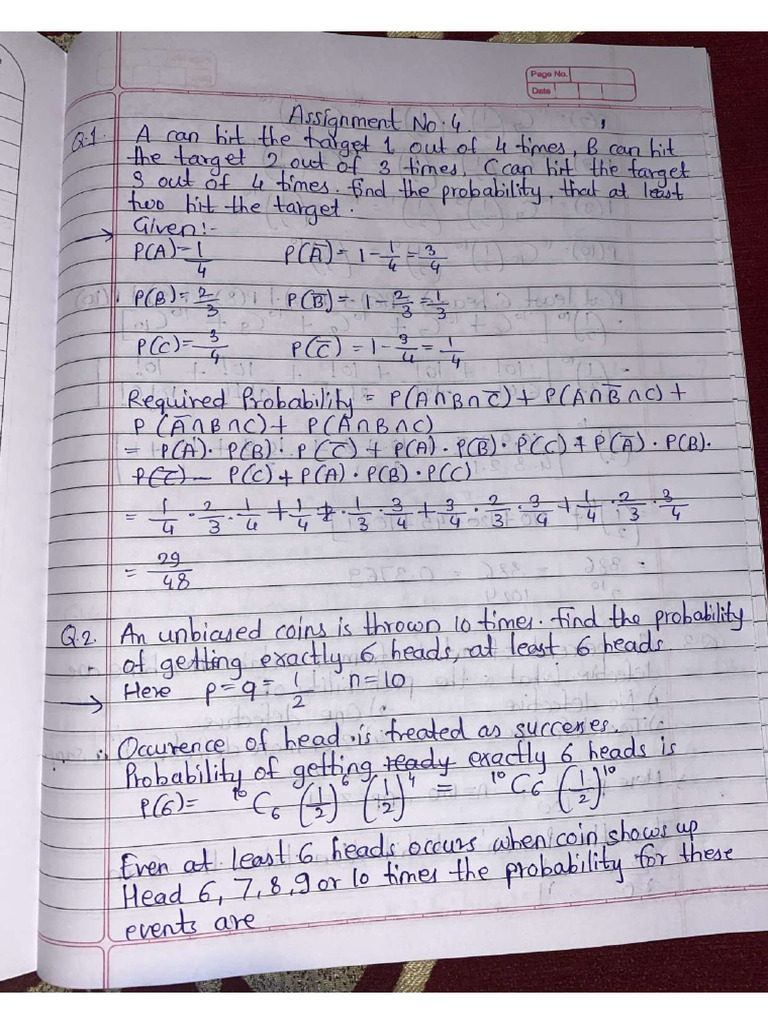 Page No.
Date
Assignment No. 4
Q.1 A can hit the target 1 out of 4 times, B can hit
the target 2 out of 3 times, C can hit the target
3 out of 4 times. find the probability. that at least
two hit the target.
→ Given:-
P(A)=1/4 P(A̅)=1-1/4=3/4
P(B)=2/3 P(B̅)=1-2/3=1/3
P(C)=3/4 P(C̅)=1-3/4=1/4
Required Probability = P(A∩B∩C̅)+P(A∩B̅∩C)+
P(A̅∩B∩C)+ P(A∩B∩C)
= P(A). P(B). P(C̅) + P(A). P(B̅). P(C) + P(A̅). P(B).
P(C̅) - P(C)+P(A). P(B). P(C)
= 1/4 . 2/3 . 1/4 + 1/4 . 1/3 . 3/4 + 3/4 . 2/3 . 3/4 + 1/4 . 2/3 . 3/4
= 29/48
Q.2. An unbiased coins is thrown 10 times. find the probability
of getting exactly 6 heads, at least 6 heads
→ Here p=q=1/2 n=10
∴ Occurence of head is treated as successes.
Probability of getting ready exactly 6 heads is
P(6)= ¹⁰C₆ (1/2)⁶ (1/2)⁴ = ¹⁰C₆ (1/2)¹⁰
Even at least 6 heads occurs when coin shows up
Head 6, 7, 8, 9 or 10 times the probability for these
events are